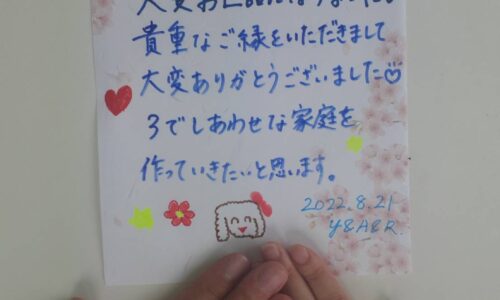 大変お世話になりました。
貴重なご縁をいただきまして
大変ありがとうございました♡
3でしあわせな家庭を
作っていきたいと思います。
2022.8.21
Y&A&R.